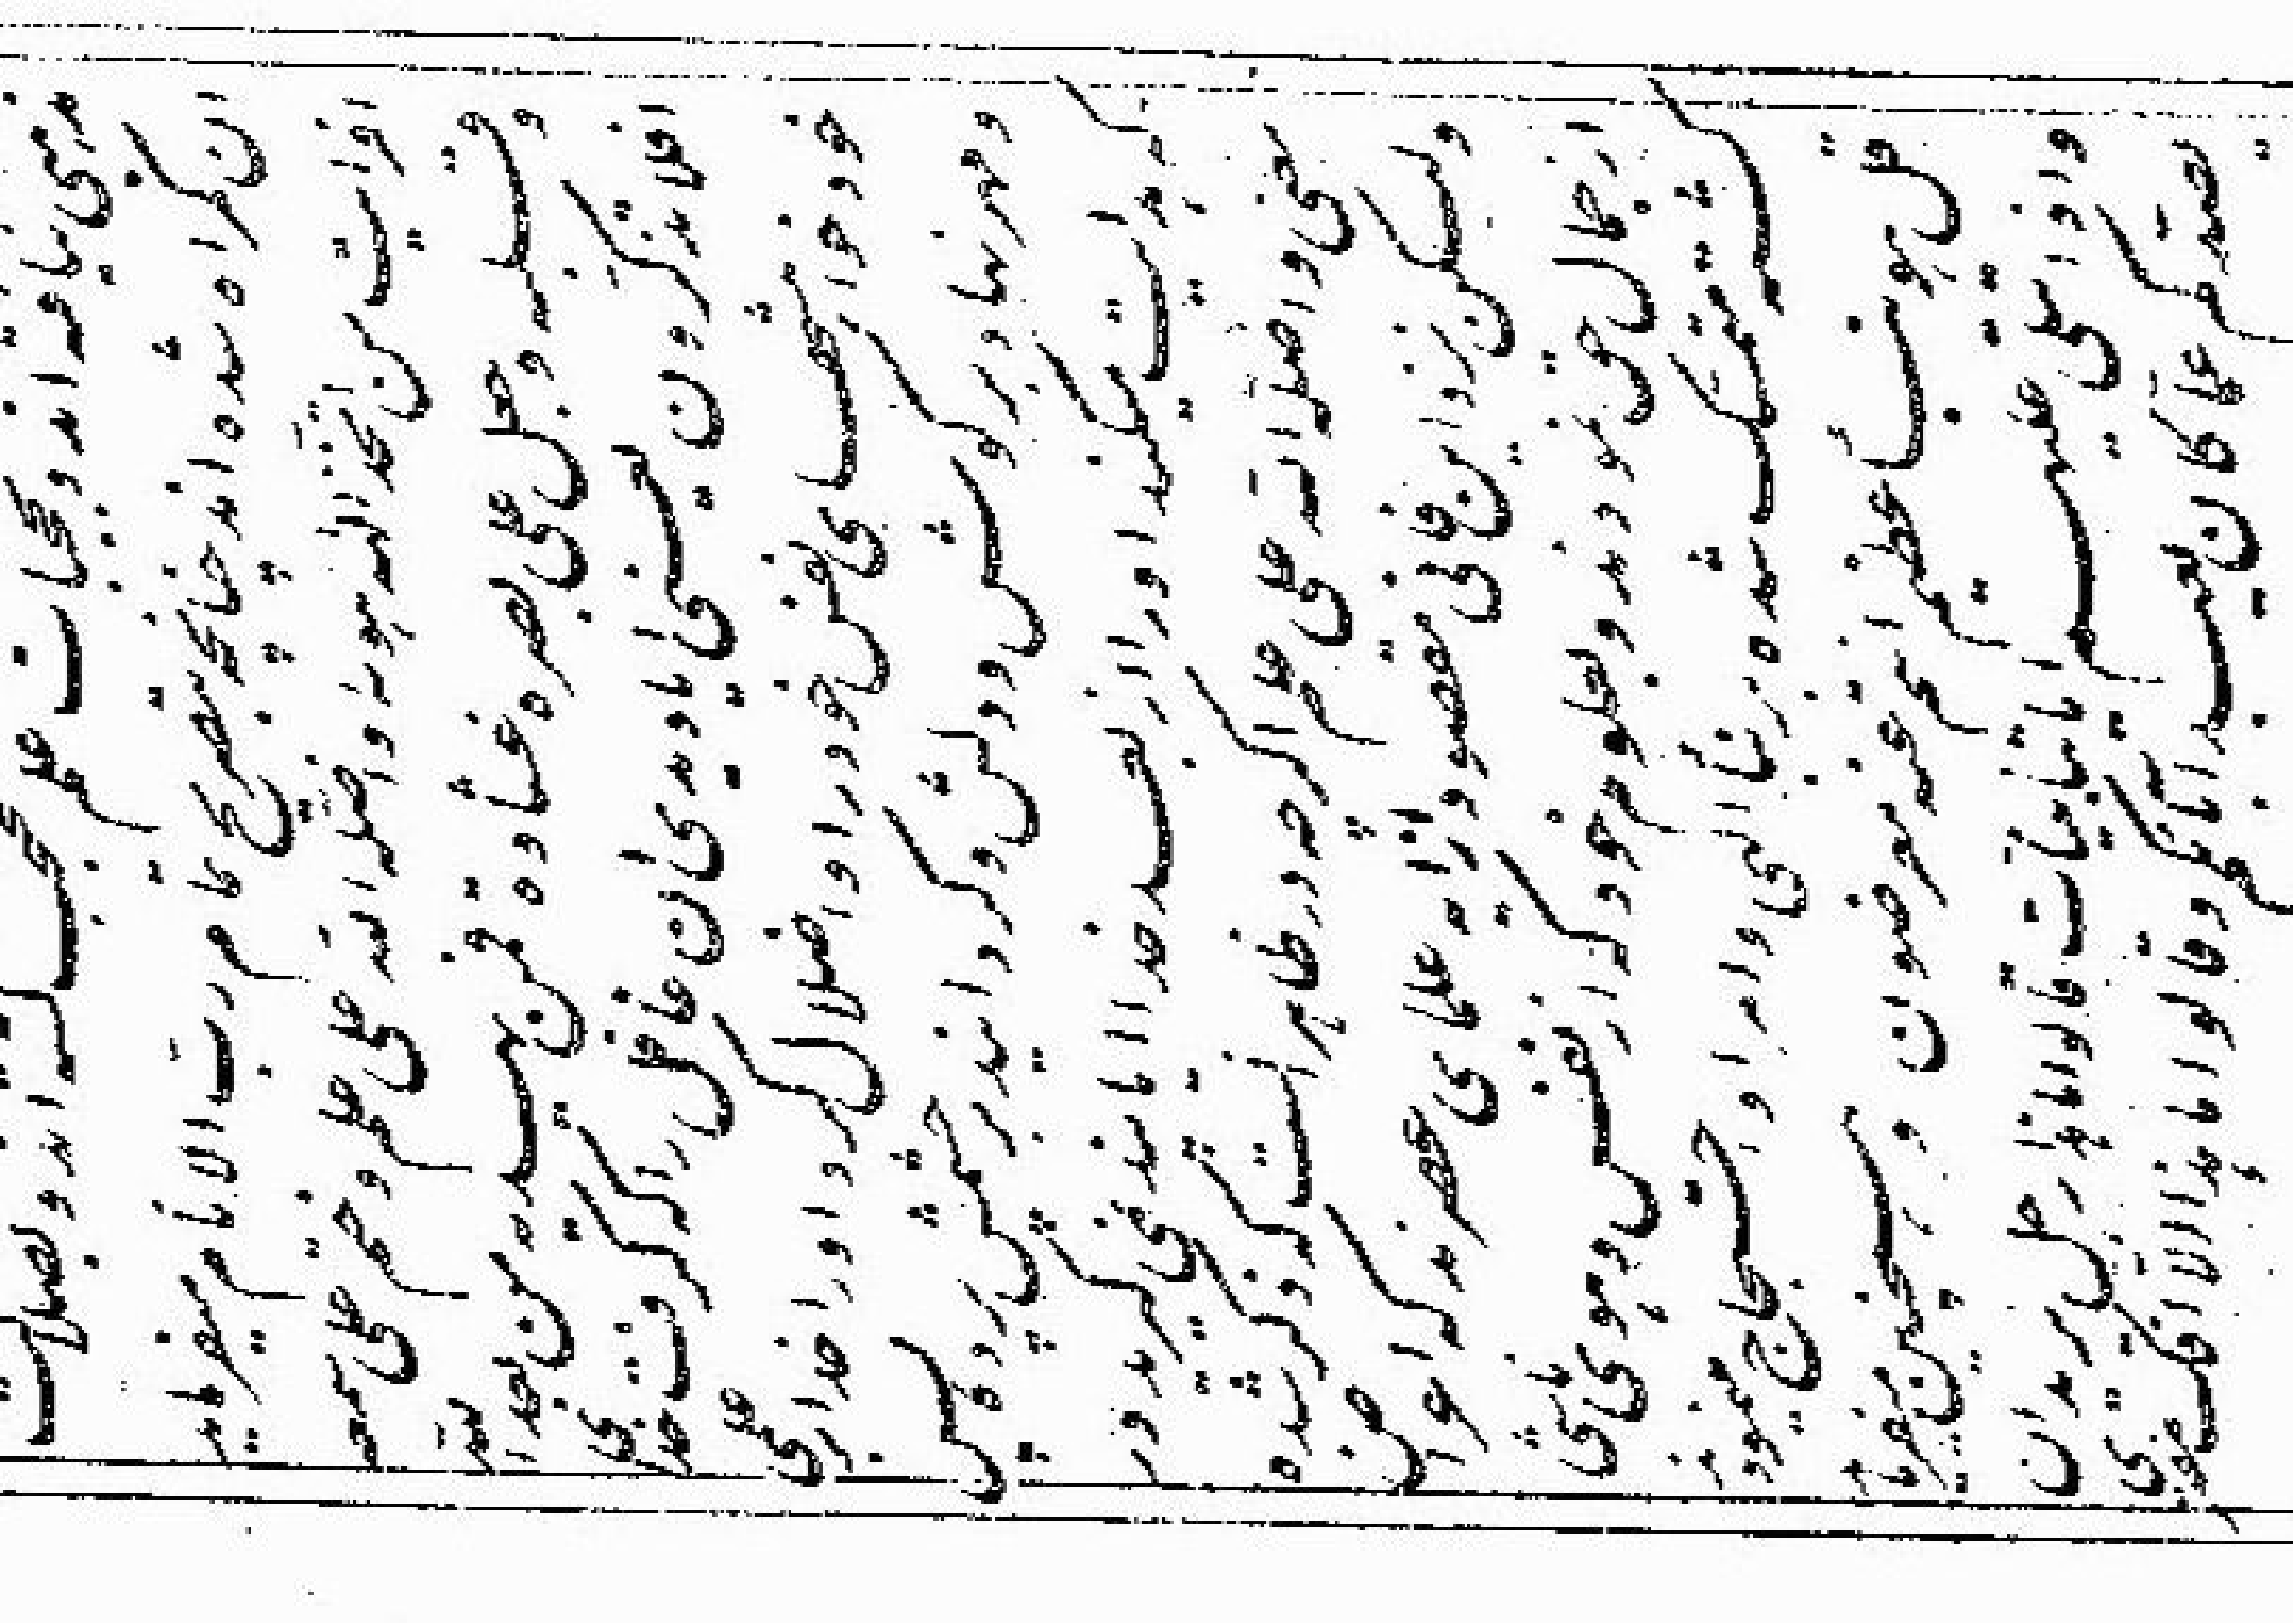 ان گمراه شده اند چنانکه کلام ربّ الانام میفرماید
افرایت من اتخذ الهه هواه واضله الله علی علم و ختم علی سمعه
و قلبه و جعل علی بصره غشاوة فمن یهدیه من بعد الله
افلا تذکرون یعنی ایا دیدی ان غافلی را که گرفت خدای
خود خواهشهای نفس خود را و اضلال کرد او را خدا
و مهر نهاد بر گوش و دلش و گردانید بر چشمش پرده پس
که هدایت میکند او را از بعد خدا ایا پند نمیگیرید و در
معنی واضله الله علی علم اگر چه در ظاهر اینست که ذکر شده
ولیکن نزد این فانی مقصود از علم علمای عصرند که اعراض
از جمال حق نمودند و بعلوم خود که از نفس و هوی ناشی
گشته متمسک شده بر نبأ الهی و امر او احتجاج نمودند
قل هو نبأ عظیم انتم عنه معرضون و همچنین میفرماید
واذا تتلی علیهم ایاتنا بینات قالوا ما هذا الا رجل یرید ان
یصدکم عما کان یعبد اباؤکم وقالوا ما هذا الا افک مفتری